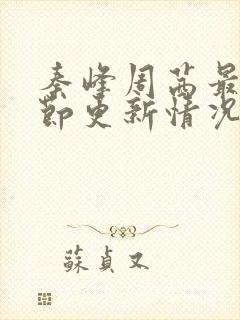 秦峰周茜最
节更新情况
蘇貞又